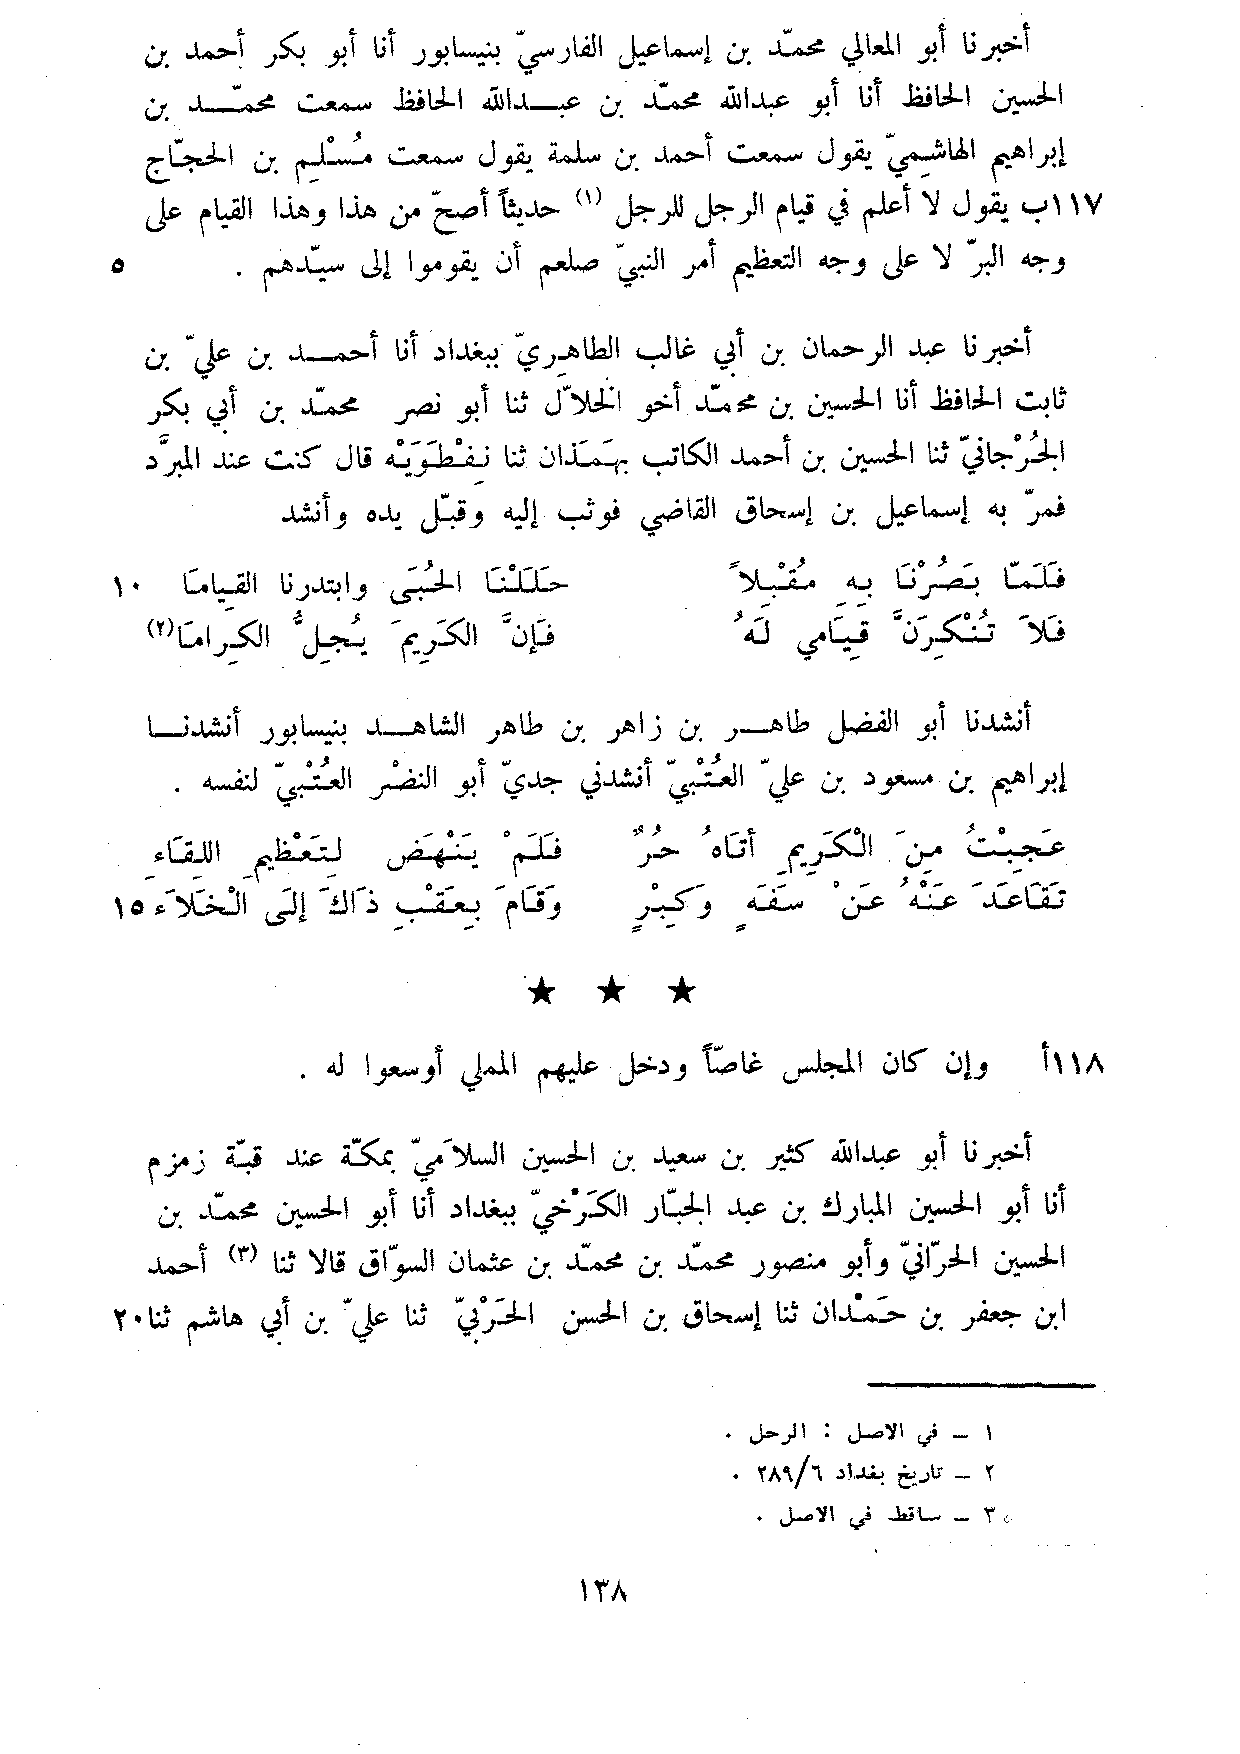 أخبرنا أبو المعالي محمّد بن إسماعيل الفارسيّ بنيسابور أنا أبو بكر أحمد بن
الحسين الحافظ أنا أبو عبدالله محمّد بن عبدالله الحافظ سمعت محمّد بن
إبراهيم الهاشِميّ يقول سمعت أحمد بن سلمة يقول سمعت مُسْلِم بن الحجّاج
١١٧ب يقول لا أعلم في قيام الرجل للرجل (١) حديثاً أصحّ من هذا وهذا القيام على
وجه البرّ لا على وجه التعظيم أمر النبيّ صلعم أن يقوموا إلى سيّدهم . ٥
أخبرنا عبد الرحمان بن أبي غالب الطاهِريّ ببغداد أنا أحمد بن عليّ بن
ثابت الحافظ أنا الحسين بن محمّد أخو الخلاّل ثنا أبو نصر محمّد بن أبي بكر
الجُرْجانيّ ثنا الحسين بن أحمد الكاتب بهَمَذان ثنا نِفْطَوَيْه قال كنت عند المبرَّد
فمرّ به إسماعيل بن إسحاق القاضي فوثب إليه وقبّل يده وأنشد
فَلَمّا بَصُرْنا بِهِ مُقْبِلاً حَلَلْنَا الحُبَى وابتدرنا القِيامَا ١٠
فَلاَ تُنْكِرَنَّ قِيَامي لَهُ فَإنَّ الكَرِيمَ يُجِلُّ الكِرامَا(٢)
أنشدنا أبو الفضل طاهر بن زاهر بن طاهر الشاهد بنيسابور أنشدنا
إبراهيم بن مسعود بن عليّ العُتْبيّ أنشدني جديّ أبو النضْر العُتْبيّ لنفسه .
عَجِبْتُ مِنَ الْكَرِيمِ أتَاهُ حُرٌّ فَلَمْ يَنْهَضْ لِتَعْظِيمِ اللِقَاءِ
تَقَاعَدَ عَنْهُ عَنْ سَفَهٍ وَكِبْرٍ وَقَامَ بِعَقْبِ ذَاكَ إلَى الْخَلاَءِ ١٥
★ ★ ★
١١٨أ وإن كان المجلس غاصّاً ودخل عليهم المملي أوسعوا له .
أخبرنا أبو عبدالله كثير بن سعيد بن الحسين السلاَميّ بمكّة عند قبّة زمزم
أنا أبو الحسين المبارك بن عبد الجبّار الكَرْخيّ ببغداد أنا أبو الحسين محمّد بن
الحسين الحرّانيّ وأبو منصور محمّد بن محمّد بن عثمان السوّاق قالا ثنا (٣) أحمد
ابن جعفر بن حَمْدان ثنا إسحاق بن الحسن الحَرْبيّ ثنا عليّ بن أبي هاشم ثنا ٢٠
١ - في الاصل : الرحل .
٢ - تاريخ بغداد ٢٨٩/٦ .
٣ - ساقط في الاصل .
١٣٨